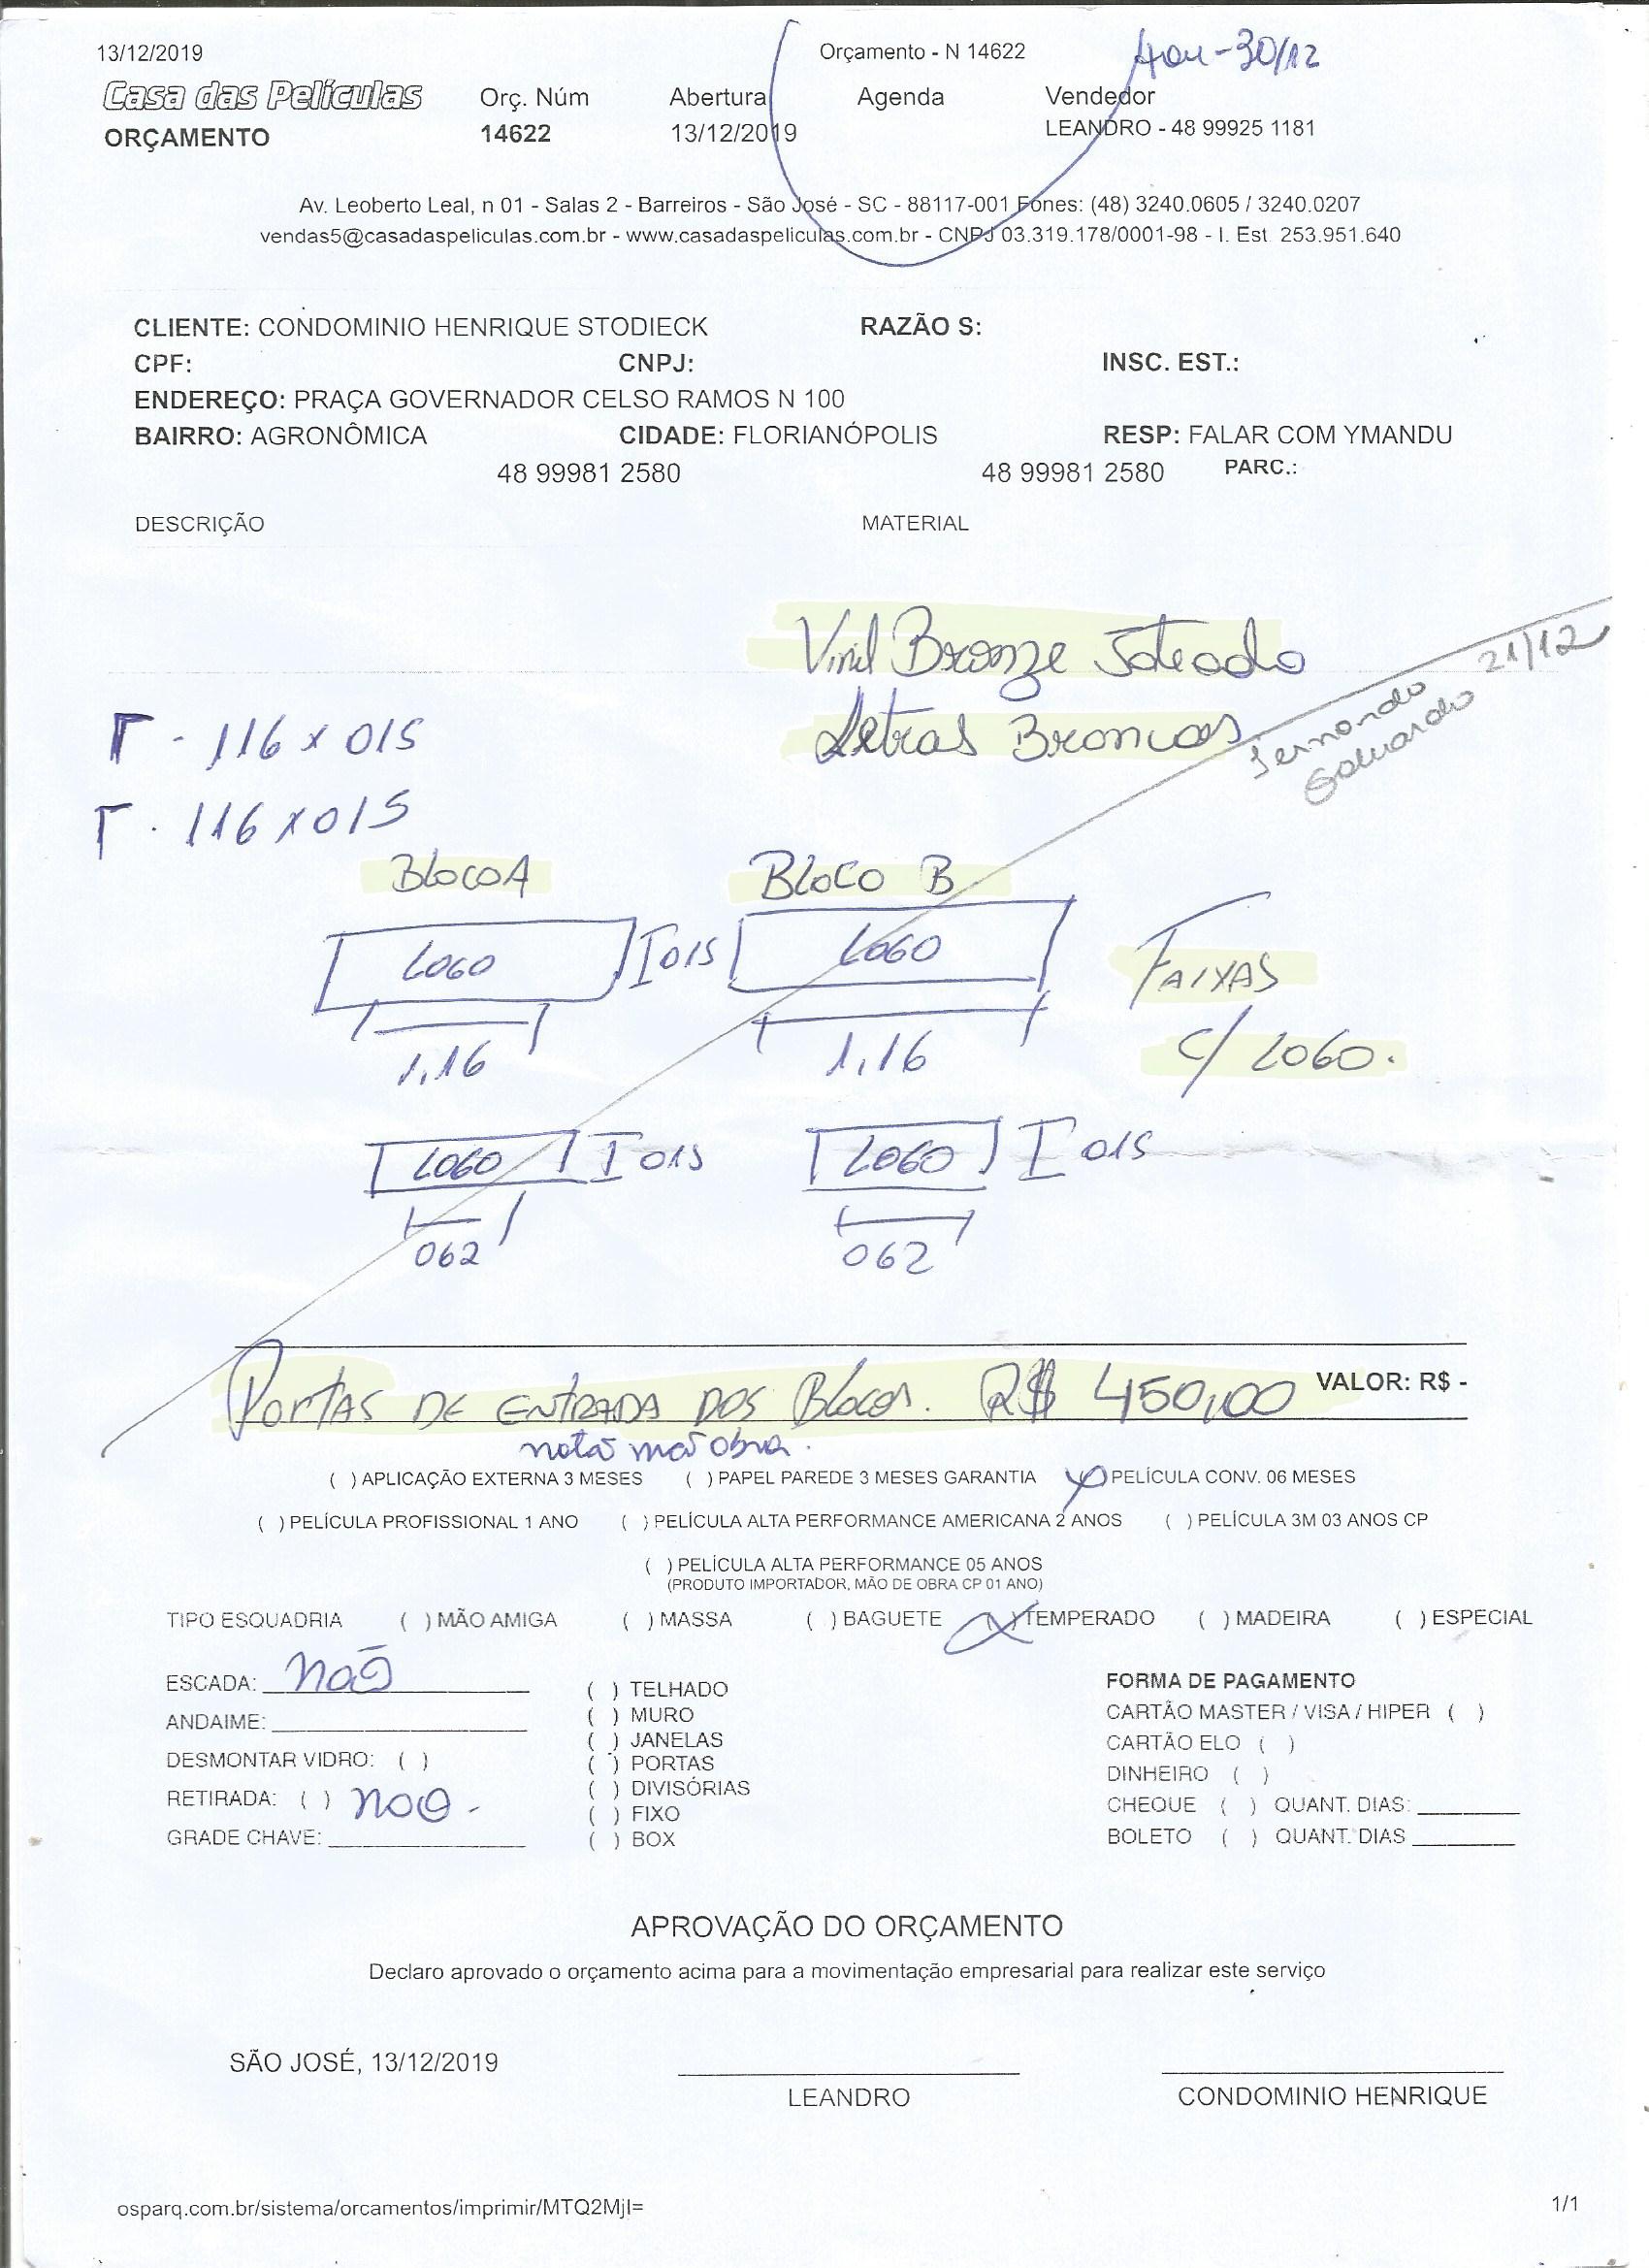 13/12/2019
Orçamento - N 14622
30/12
Casa das Películas
ORÇAMENTO
Orç. Núm
14622
Abertura
13/12/2019
Agenda
Vendedor
LEANDRO - 48 99925 1181
Av. Leoberto Leal, n 01 - Salas 2 - Barreiros - São José - SC - 88117-001 Fones: (48) 3240.0605 / 3240.0207
vendas5@casadaspeliculas.com.br - www.casadaspeliculas.com.br - CNPJ 03.319.178/0001-98 - I. Est. 253.951.640
CLIENTE: CONDOMINIO HENRIQUE STODIECK RAZÃO S:
CPF: CNPJ: INSC. EST.:
ENDEREÇO: PRAÇA GOVERNADOR CELSO RAMOS N 100
BAIRRO: AGRONÔMICA CIDADE: FLORIANÓPOLIS RESP: FALAR COM YMANDU
48 99981 2580 48 99981 2580 PARC.:
DESCRIÇÃO MATERIAL
Vinil Bronze Joteado
Letras Brancas
21/12
Fernando
Eduardo
116 x 015
116 x 015
BLOCO A BLOCO B
LOGO 015 LOGO
FAIXAS
C/ LOGO.
1,16 1,16
LOGO 015 LOGO 015
062 062
PORTAS DE ENTRADA DOS Blocos. R$ 450,00 VALOR: R$ -
nota mão obra.
( ) APLICAÇÃO EXTERNA 3 MESES ( ) PAPEL PAREDE 3 MESES GARANTIA PELÍCULA CONV. 06 MESES
( ) PELÍCULA PROFISSIONAL 1 ANO ( ) PELÍCULA ALTA PERFORMANCE AMERICANA 2 ANOS ( ) PELÍCULA 3M 03 ANOS CP
( ) PELÍCULA ALTA PERFORMANCE 05 ANOS
(PRODUTO IMPORTADOR, MÃO DE OBRA CP 01 ANO)
TIPO ESQUADRIA ( ) MÃO AMIGA ( ) MASSA ( ) BAGUETE ( ) TEMPERADO ( ) MADEIRA ( ) ESPECIAL
ESCADA: não
ANDAIME:
DESMONTAR VIDRO: ( )
RETIRADA: ( ) não -
GRADE CHAVE:
( ) TELHADO
( ) MURO
( ) JANELAS
( ) PORTAS
( ) DIVISÓRIAS
( ) FIXO
( ) BOX
FORMA DE PAGAMENTO
CARTÃO MASTER / VISA / HIPER ( )
CARTÃO ELO ( )
DINHEIRO ( )
CHEQUE ( ) QUANT. DIAS:
BOLETO ( ) QUANT. DIAS
APROVAÇÃO DO ORÇAMENTO
Declaro aprovado o orçamento acima para a movimentação empresarial para realizar este serviço
SÃO JOSÉ, 13/12/2019
LEANDRO
CONDOMINIO HENRIQUE
osparq.com.br/sistema/orcamentos/imprimir/MTQ2MjI=
1/1